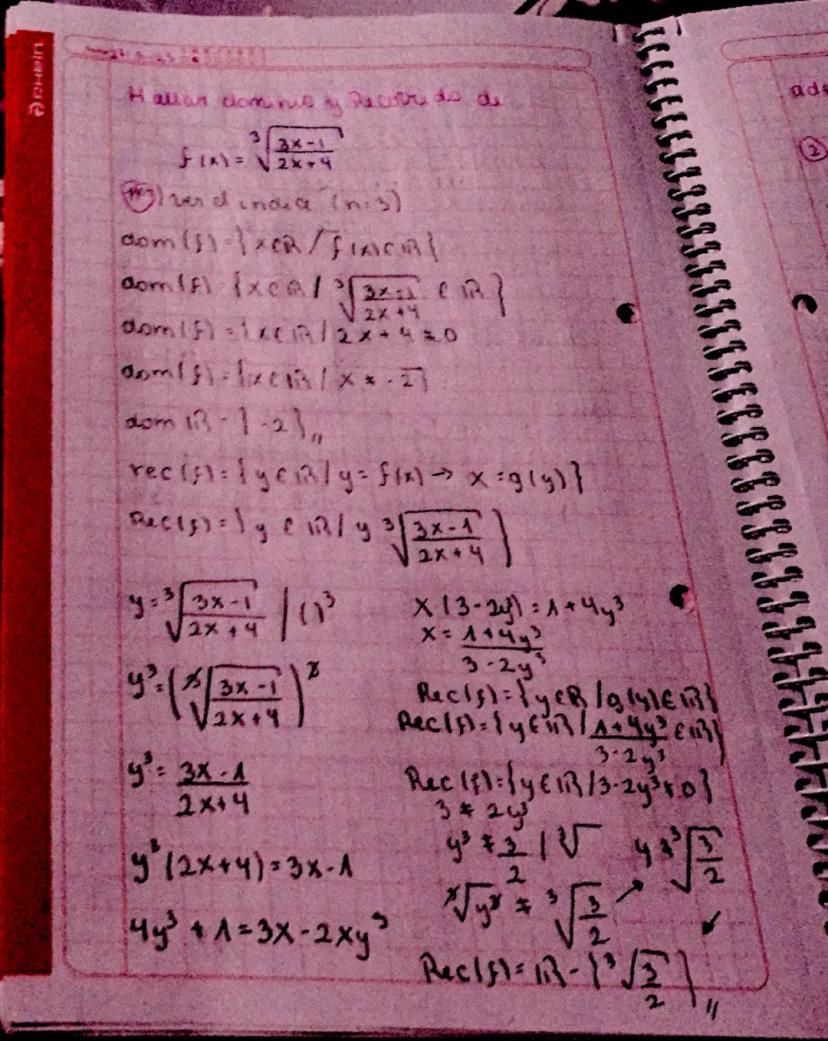 Hallar dominio y Recorrido de
f(x) = ∛((3x-1)/(2x+4))
ver el indice (n:3)
dom(f) = {x∈R / f(x)∈R}
dom(f) {x∈R / ∛((3x-1)/(2x+4)) ∈ R}
dom(f) = {x∈R / 2x+4 ≠ 0
dom(f) = {x∈R / x ≠ -2}
dom R - {-2},,
rec(f) = {y∈R / y = f(x) → x = g(y)}
Rec(f) = {y∈R / y ∛((3x-1)/(2x+4))}
y = ∛((3x-1)/(2x+4)) / ( )³
y³ = (∛((3x-1)/(2x+4)))³
y³ = (3x-1)/(2x+4)
y³(2x+4) = 3x-1
4y³+1 = 3x-2xy³
x(3-2y³) = 1+4y³
x = (1+4y³)/(3-2y³)
Rec(f) = {y∈R / g(y)∈R}
Rec(f) = {y∈R / (1+4y³)/(3-2y³) ∈ R}
Rec(f) = {y∈R / 3-2y³ ≠ 0}
3 ≠ 2y³
y³ ≠ 3/2 / ∛
∛y³ ≠ ∛(3/2)
y ≠ ∛(3/2)
Rec(f) = R - {∛(3/2)},,
ad
2